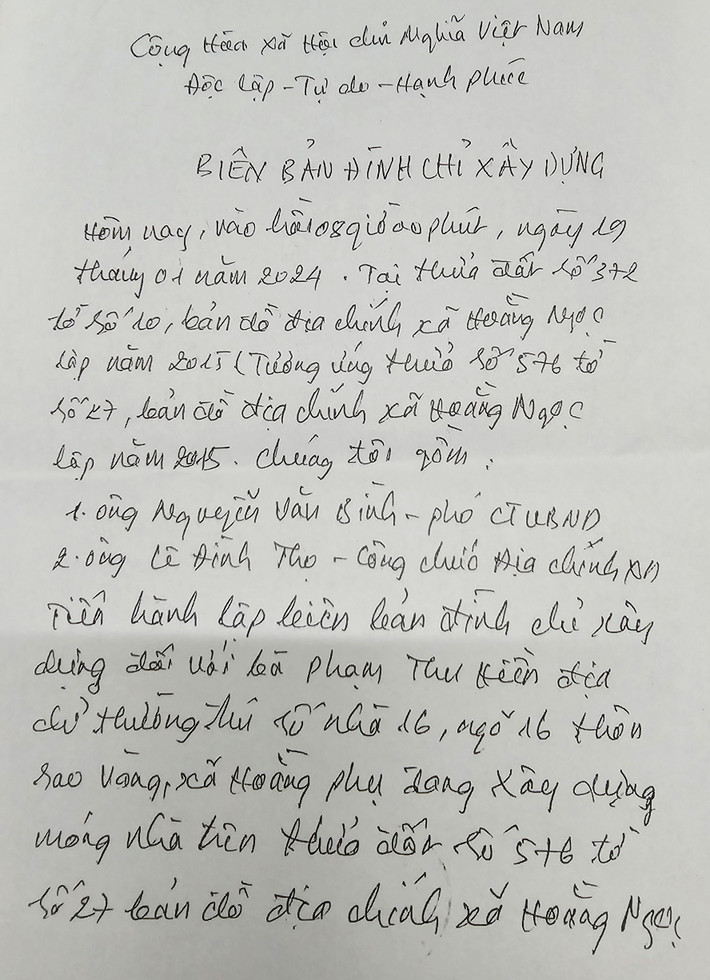 Cộng Hòa xã Hội chủ Nghĩa Việt Nam
Độc lập - Tự do - Hạnh phúc
BIÊN BẢN ĐÌNH CHỈ XÂY DỰNG
Hôm nay, vào hồi 08 giờ 00 phút, ngày 19
tháng 01 năm 2024. Tại thửa đất số 372
tờ số 10, bản đồ địa chính xã Hoằng Ngọc
lập năm 2015 (Tương ứng thửa số 576 tờ
số 27, bản đồ địa chính xã Hoằng Ngọc
lập năm 2015. Chúng tôi gồm:
1. ông Nguyễn Văn Bình - phó CTUBND
2. ông Lê Đình Thọ - Công chức Địa chính XD
Tiến hành lập biên bản đình chỉ xây
dựng đối với bà Phạm Thu Hiền địa
chỉ thường trú số nhà 16, ngõ 16 thôn
sao Vàng, xã Hoằng phụ đang xây dựng
móng nhà trên thửa đất số 576 tờ
số 27 bản đồ địa chính xã Hoằng Ngọc